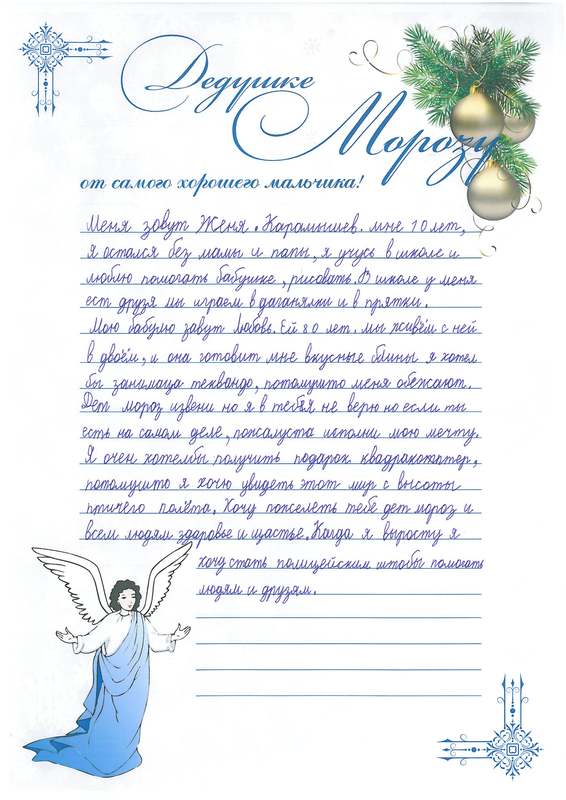 Дедушке
Морозу
от самого хорошего мальчика!
Меня зовут Женя. Карамышев. мне 10 лет,
я остался без мамы и папы, я учусь в школе и
люблю помогать бабушке, рисовать. В школе у меня
ест друзя мы играем в даганялки и в прятки.
Мою бабулю завут Любовь. Ей 80 лет. мы живём с ней
в двоём, и она готовит мне вкусные блины я хотел
бы занимаца теквандо, потомушто меня обежают.
Дет мороз извени но я в тебя не верю но если ты
есть на самом деле, пожалуста исполни мою мечту.
Я очен хотелбы получить подарок квадракоптер,
потомушто я хочю увидеть этот мир с высоты
птичего палёта. Хочу пожелеть тебе дет мороз и
всем людям здоровье и щастье. Кагда я выросту я
хочу стать полицейским штобы помогать
людям и друзям.